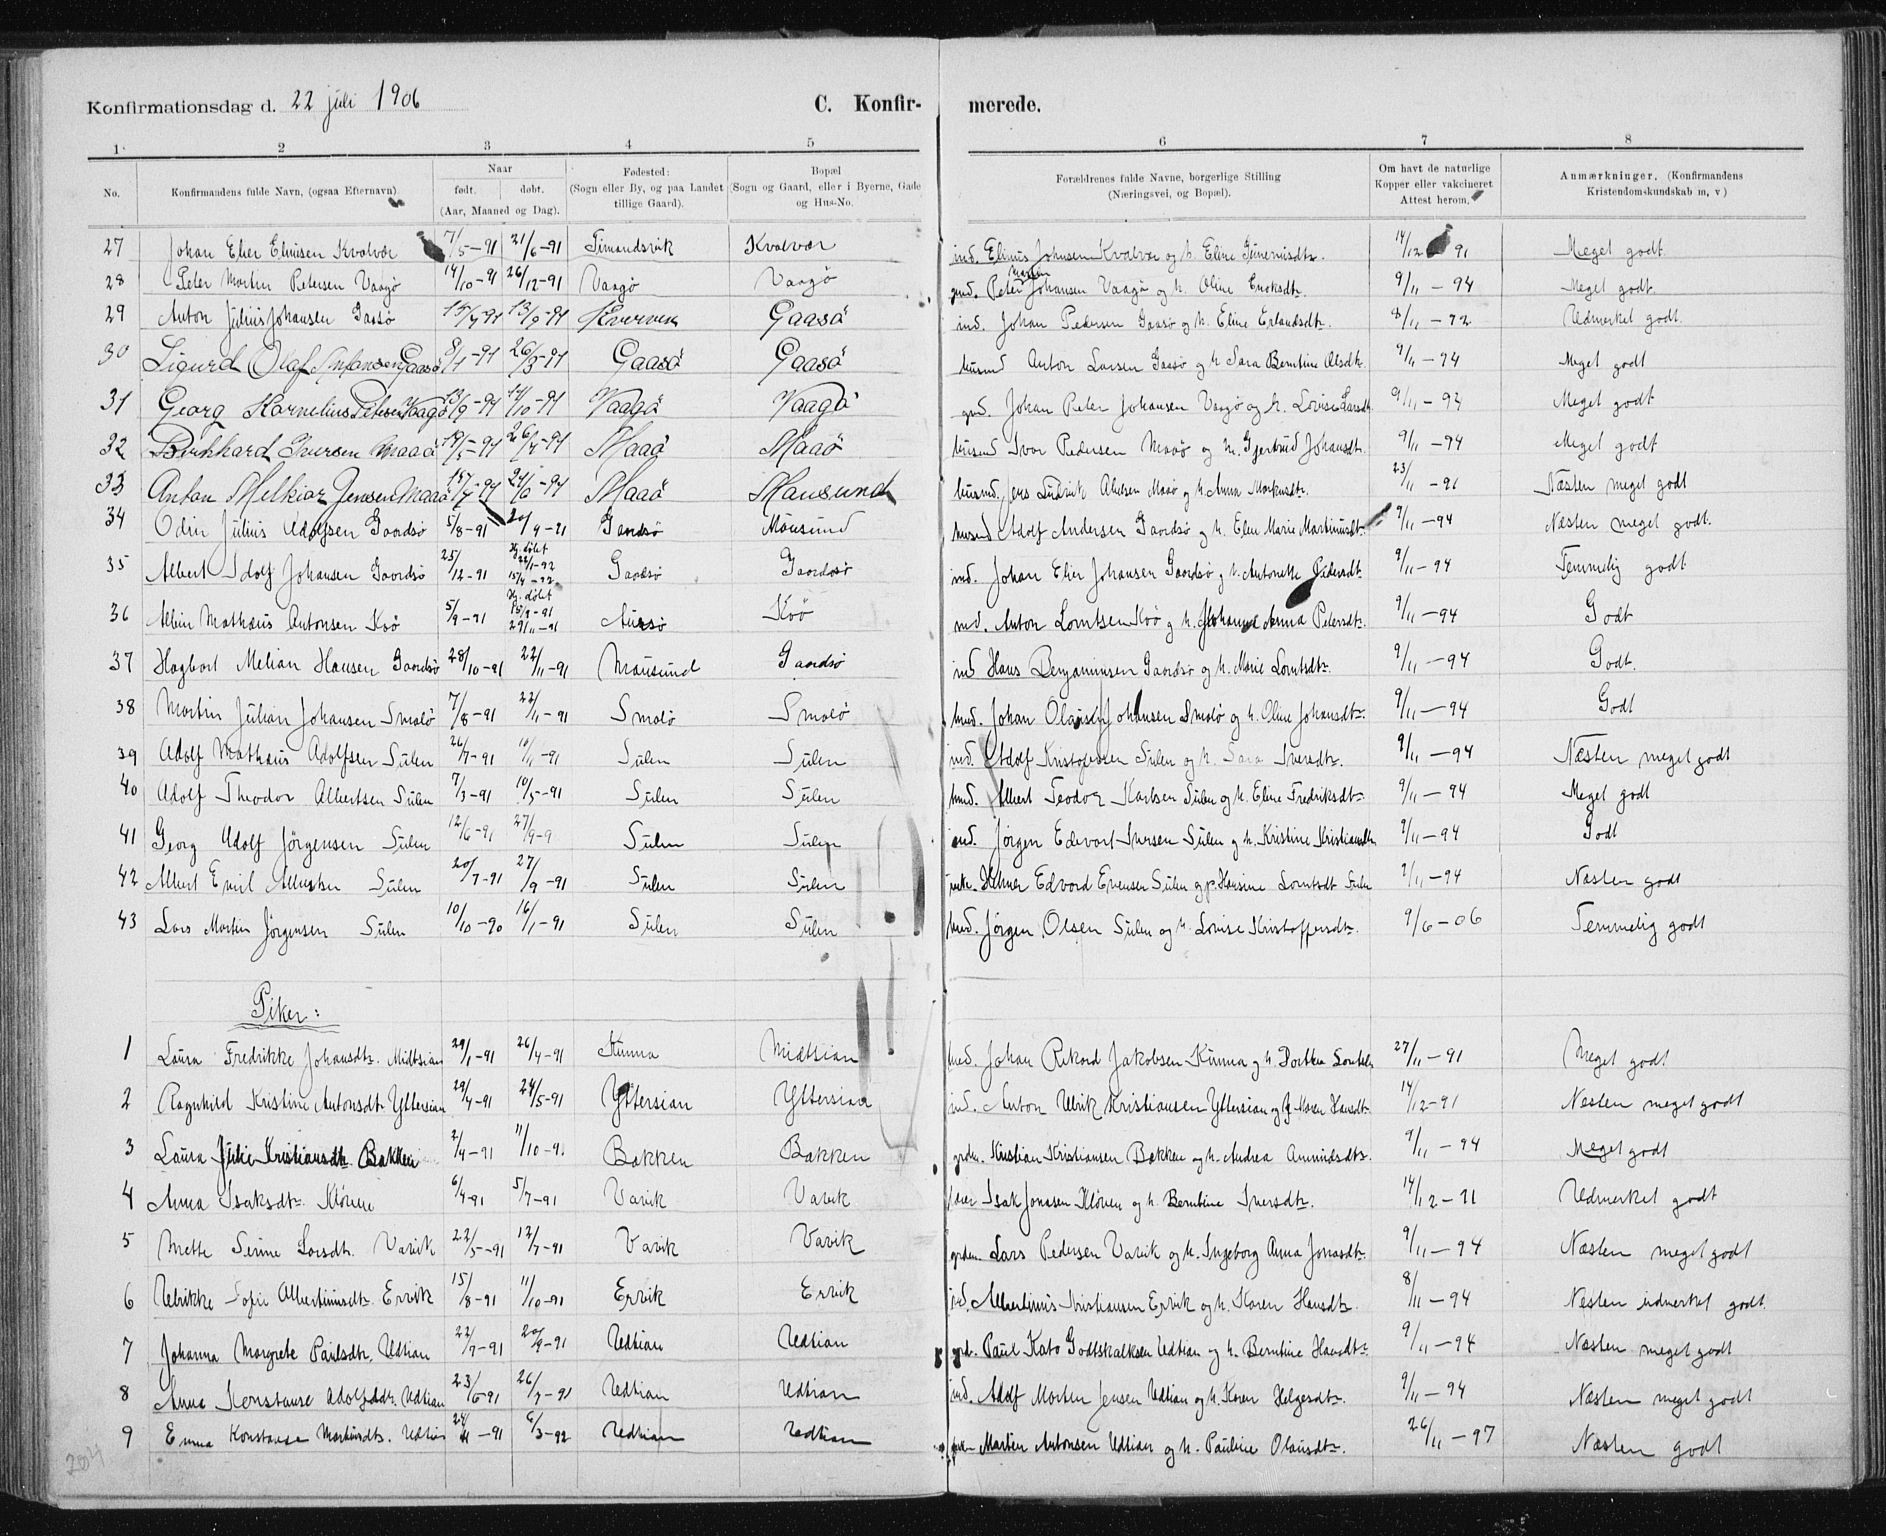 Konfirmationsdag d. 22 juli 1906 C. Konfir- merede.
1 2 3 4 5 6 7 8
No. Konfirmandens fulde Navn, (ogsaa Efternavn). Naar født. døbt. (Aar, Maaned og Dag). Fødested: (Sogn eller By, og paa Landet tillige Gaard). Bopæl (Sogn og Gaard, eller i Byerne, Gade og Hus-No. Forældrenes fulde Navne, borgerlige Stilling (Næringsvei, og Bopæl). Om havt de naturlige Kopper eller vakcineret Attest herom. Anmærkninger, (Konfirmandens Kristendomskundskab m, v)
27 Johan Elier Elinisen Kvalvær 7/5-91 21/6-91 Kvalvær ind. Elinus Johnsen Kvalvær og h. Eline 14/12 91 Meget godt.
28 Peter Martin Petersen Vaagø 14/10-91 26/12-91 Vaagø Vaagø gmd. Peter Martin Johansen Vaagø og h. Oline 9/11-94 Meget godt.
29 Anton Julius Johansen Gaasø 13/9-91 Gaasø ind. Johan Pedersen Gaasø og h. Eline Erlandsdtr. Udmerket godt.
30 Sigurd Olaf Antonsen Gaasø 26/3-91 Gaasø Gaasø husmd Anton Larsen Gaasø og h Sara Berntine Olsdtr. 9/11-94 Meget godt
31 Georg Kornelius Petersen Vaagø 13/9-91 14/10-91 Vaagø Vaagø gmd. Johan Peter Johansen Vaagø og h. Lovise Larsdtr. 9/11-94 Meget godt
32 Bernhard Iversen Maaø 19/5-91 26/7-91 Maaø Maaø husmd Ivar Pedersen Maaø og h. Gjertrud Johansdtr. 9/11-94 Meget godt
33 Anton Melkior Jensen Maaø Maaø Mausund husmd. Jens Ludvik Maaø og h. Anna 23/11-91 Næsten meget godt
34 Odin Julius Adolfsen Gaardsø 5/8-91 20/9-91 Gaardsø Mausund husmd Adolf Andersen Gaardsø og h. Elen Marie Martinusdtr. 9/11-94 Næsten meget godt.
35 Albert Adolf Johansen Gaardsø 25/12-91 Hj. døbt Gaardsø Gaardsø ind. Johan Elier Johansen Gaardsø og h. Antonette 9/11-94 Temmelig godt
36 Albin Mathæus Antonsen Kvø 5/9-91 Hj. døbt 15/9-91 29/11-91 Kvø ind. Anton Lorntsen Kvø og h. Johanna Anna Petersdtr. 9/11-94 Godt
37 Hagbart Melian Hansen Gaardsø 28/10-91 22/11-91 Mausund Gaardsø ind Hans Benjaminsen Gaardsø og h. Marie Lorntsdtr. 9/11-94 Godt.
38 Martin Julian Johansen Smalø 7/8-91 22/11-91 Smalø Smalø husd. Johan Olaus Johansen Smalø og h. Oline Johansdtr. 9/11-94 Godt
39 Adolf Mathæus Adolfsen Sulen 26/7-91 Sulen Sulen ind. Adolf Kristofersen Sulen og h. Sara Iversdtr. 9/11-94 Næsten meget godt
40 Adolf Theodor Albertsen Sulen 7/3-91 10/5-91 Sulen Sulen husd. Albert Teodor Karlsen Sulen og h. Eline Fredriksdtr. 9/11-94 Meget godt
41 Georg Adolf Jørgensen Sulen 12/6-91 27/9-9 Sulen Sulen ind. Jørgen Edevart Iversen Sulen og h. Kristine Kristiansdtr 9/11-94 Godt
42 Albert Emil Sulen 20/7-91 27/9-91 Sulen Sulen Edvard Evensen Sulen og p. Hansine Lorntsdt Sulen 9/11-94 Næsten godt
43 Lars Martin Jørgensen Sulen 10/10-90 16/1-91 Sulen Sulen husd. Jørgen Olsen Sulen og h. Lovise Kristoffersdtr. 9/6-06 Temmelig godt
Piker:
1 Laura Fredrikke Johansdtr. Midtsian 29/1-91 26/4-91 Kunna Midtsian Johan Rikard Jakobsen Kunna og h. Dorthea 27/11-91 Meget godt
2 Ragnhild Kristine Antonsdtr. Yttersian 29/4-91 24/5-91 Yttersian Yttersian ind. Anton Ulrik Kristiansen Yttersian og h. Karen Hansdtr. 14/12-91 Næsten meget godt
3 Laura Julie Kristiansdtr. Bakken 2/4-91 11/10-91 Bakken Bakken grdm. Kristian Kristiansen Bakken og h. Andrea Amundsdtr. 9/11-94 Meget godt
4 Anna Isaksdtr. Kløven 6/4-91 5/7-91 Varik Varik Isak Jonasen Kløven og h. Berntine Iversdtr. 14/12-91 Udmerket godt
5 Mette Serine Larsdtr. Varik 22/5-91 12/7-91 Varik Varik grdm. Lars Pedersen Varik og h. Ingeborg Anna Jonasdtr. 9/11-94 Næsten meget godt
6 Ulrikke Sofie Albertinusdtr. Ervik 15/8-91 11/10-91 Ervik Ervik ind. Albertinus Kristiansen Ervik og h. Karen Hansdtr. 8/11-94 Næsten udmerket godt.
7 Johanna Margrete Paulsdtr. Udtian 22/7-91 20/9-91 Udtian Udtian grd. Paul Kato Godtskalksen Udtian og h. Berntine Hansdtr. 9/11-94 Næsten meget godt
8 Anna Konstanse Adolfsdtr. Udtian 23/6-91 26/7-91 Udtian Udtian ind. Adolf Morten Jensen Udtian og h. Karen Helgesdtr. 9/11-94 Næsten meget godt
9 Emma Konstanse Martinsdtr. Udtian 24/11-91 6/3-92 Udtian Udtian Martin Antonsen Udtian og h. Pauline Olausdtr. 26/11-97 Næsten godt
204